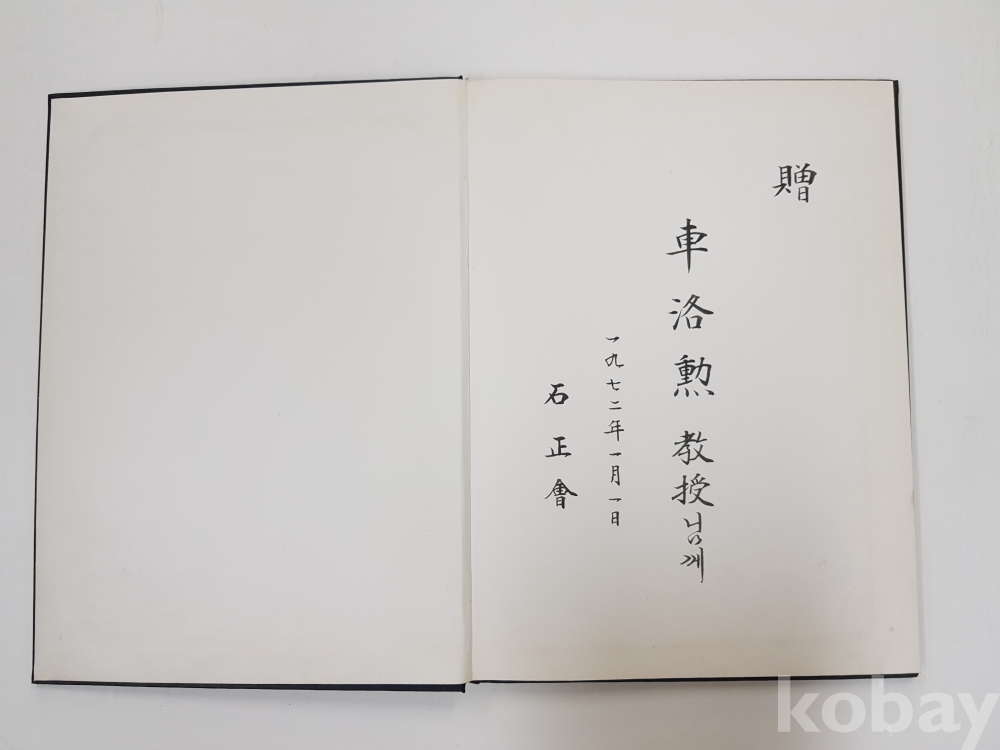 贈
車洛勲 教授님께
一九七二年一月一日
石正會
kobay